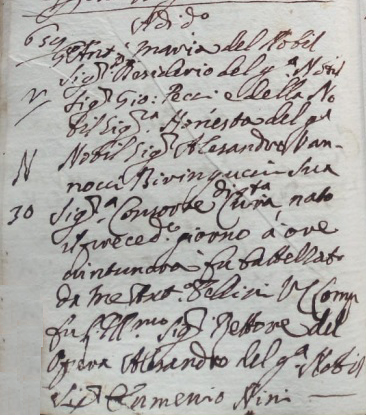 Adi d.º
659 Ant.º Maria del Nobil
Sig.r Desiderio del q.m Nobil
Sig.r Gio: Pecci e della No
bil Sig.ra Honesta del q.m
N Nobil Sig.r Alesandro Van-
nocci Biringucci sua
30 Sig.ra Consorte di q.ta Cura, nato
il preced.e giorno à ore
vintunora fu battezzato
da me Ant.º Comp
fu l'Ill.mo Sig.r Rettore del
Opera Alesandro del q.m Nobil
Sig.r Ermenio Nini —